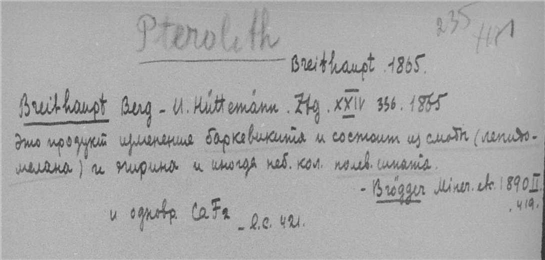 Pterolith
235
Breithaupt. 1865.
Breithaupt Berg - U. Hüttemänn. Ztg. XXIV 336. 1865
Это продукт изменения баркевикита и состоит из слюды (лепидо-
мелана) и эгирина и иногда неб. кол. полев. шпата.
- Brögger Miner. etc. 1890 II
. 419.
и одновр. CaF2 - l.c. 421.